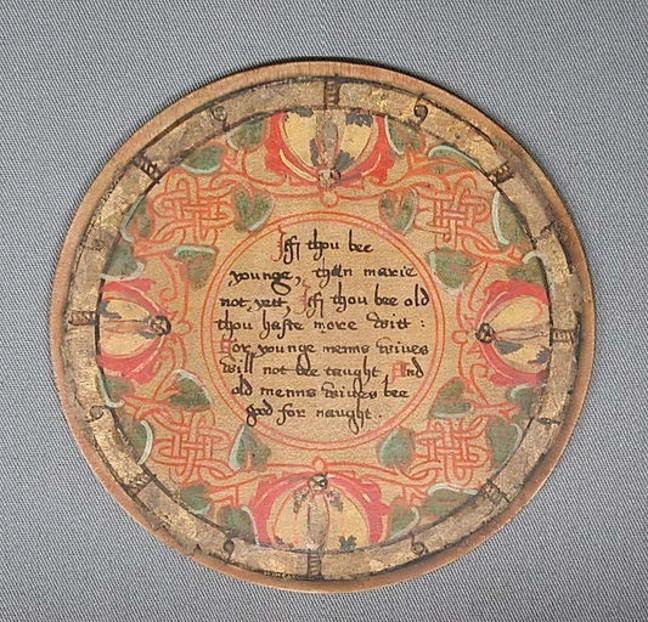 Iff thou bee
younge, then marie
not yett, Iff thou bee old
thou haste more witt :
For younge menns wives
will not bee taught, And
old menns wives bee
good for naught.